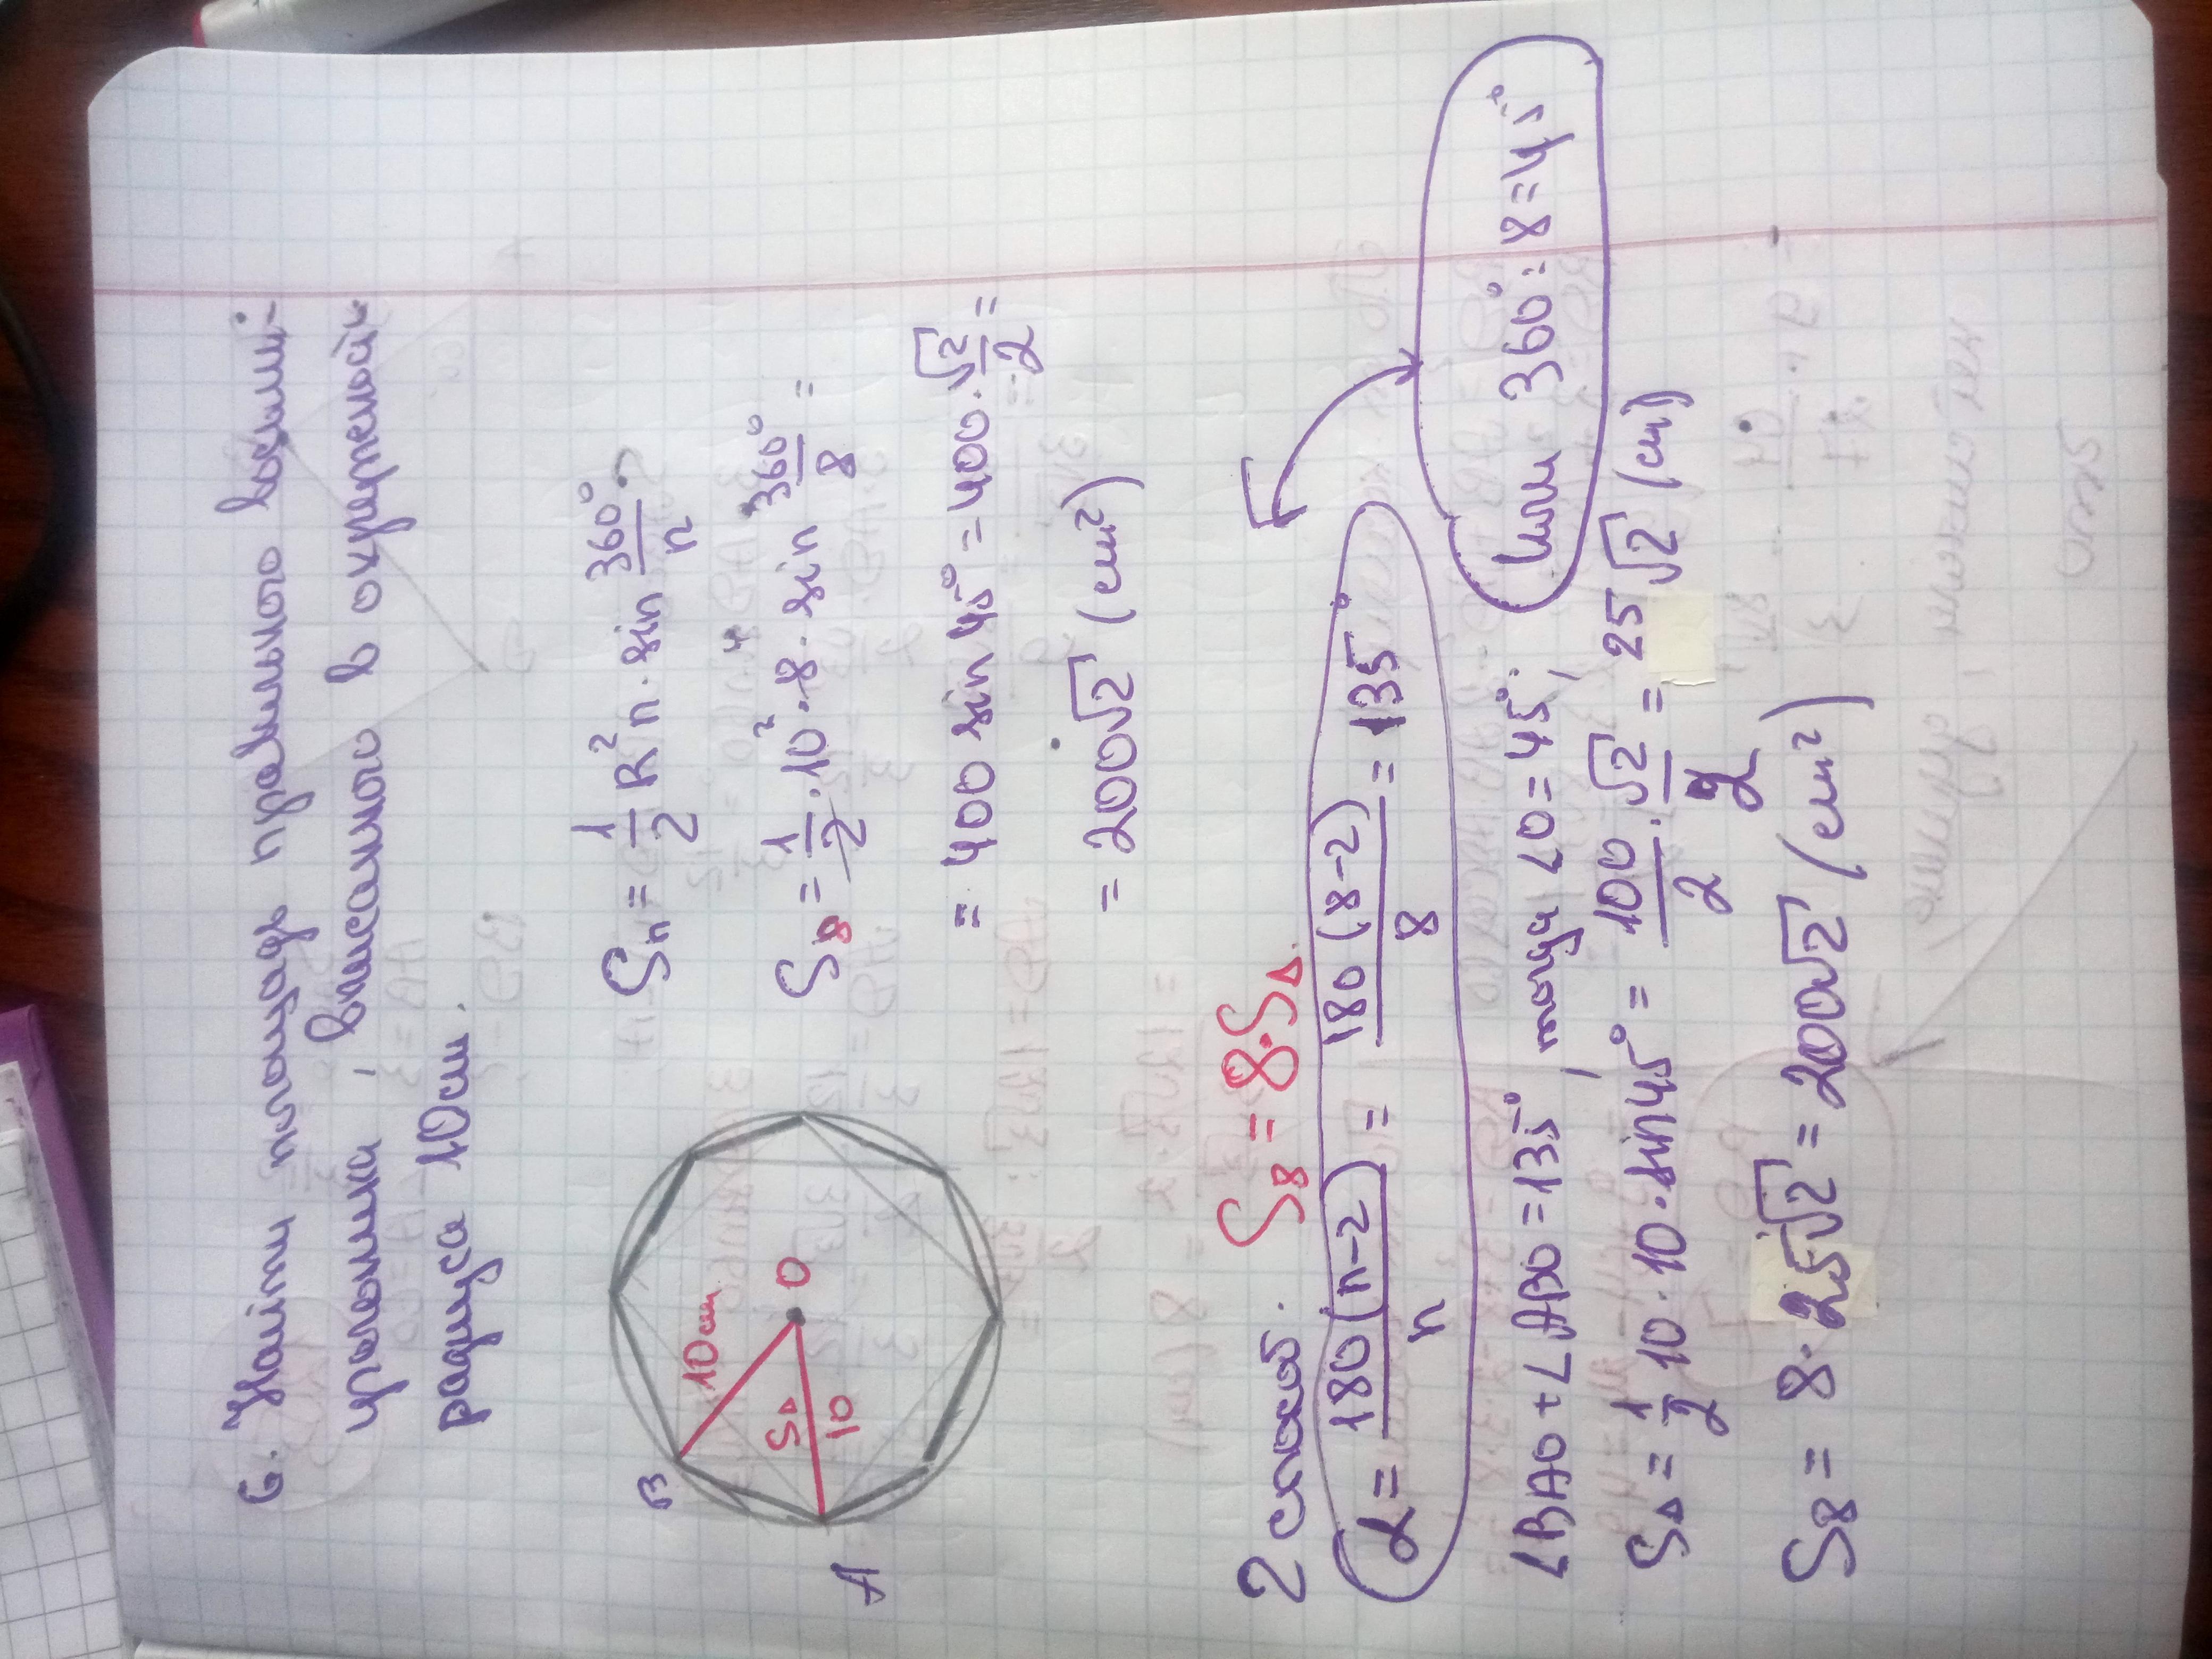 6. Найти площадь правильного восьми-
угольника, вписанного в окружность
радиуса 10см.
B
10см
O
S△
10
A
Sₙ = 1/2 R² n · sin 360°/n
S₈ = 1/2 · 10² · 8 · sin 360°/8 =
= 400 sin 45° = 400 · √2/2 =
= 200√2 (см²)
2 способ.
S₈ = 8 · S△
α = 180(n-2)/n = 180(8-2)/8 = 135°
или 360° : 8 = 45°
∠BAO + ∠ABO = 135°, тогда ∠O = 45°;
S△ = 1/2 · 10 · 10 · sin 45° = 100/2 · √2/2 = 25√2 (см)
S₈ = 8 · 25√2 = 200√2 (см²)